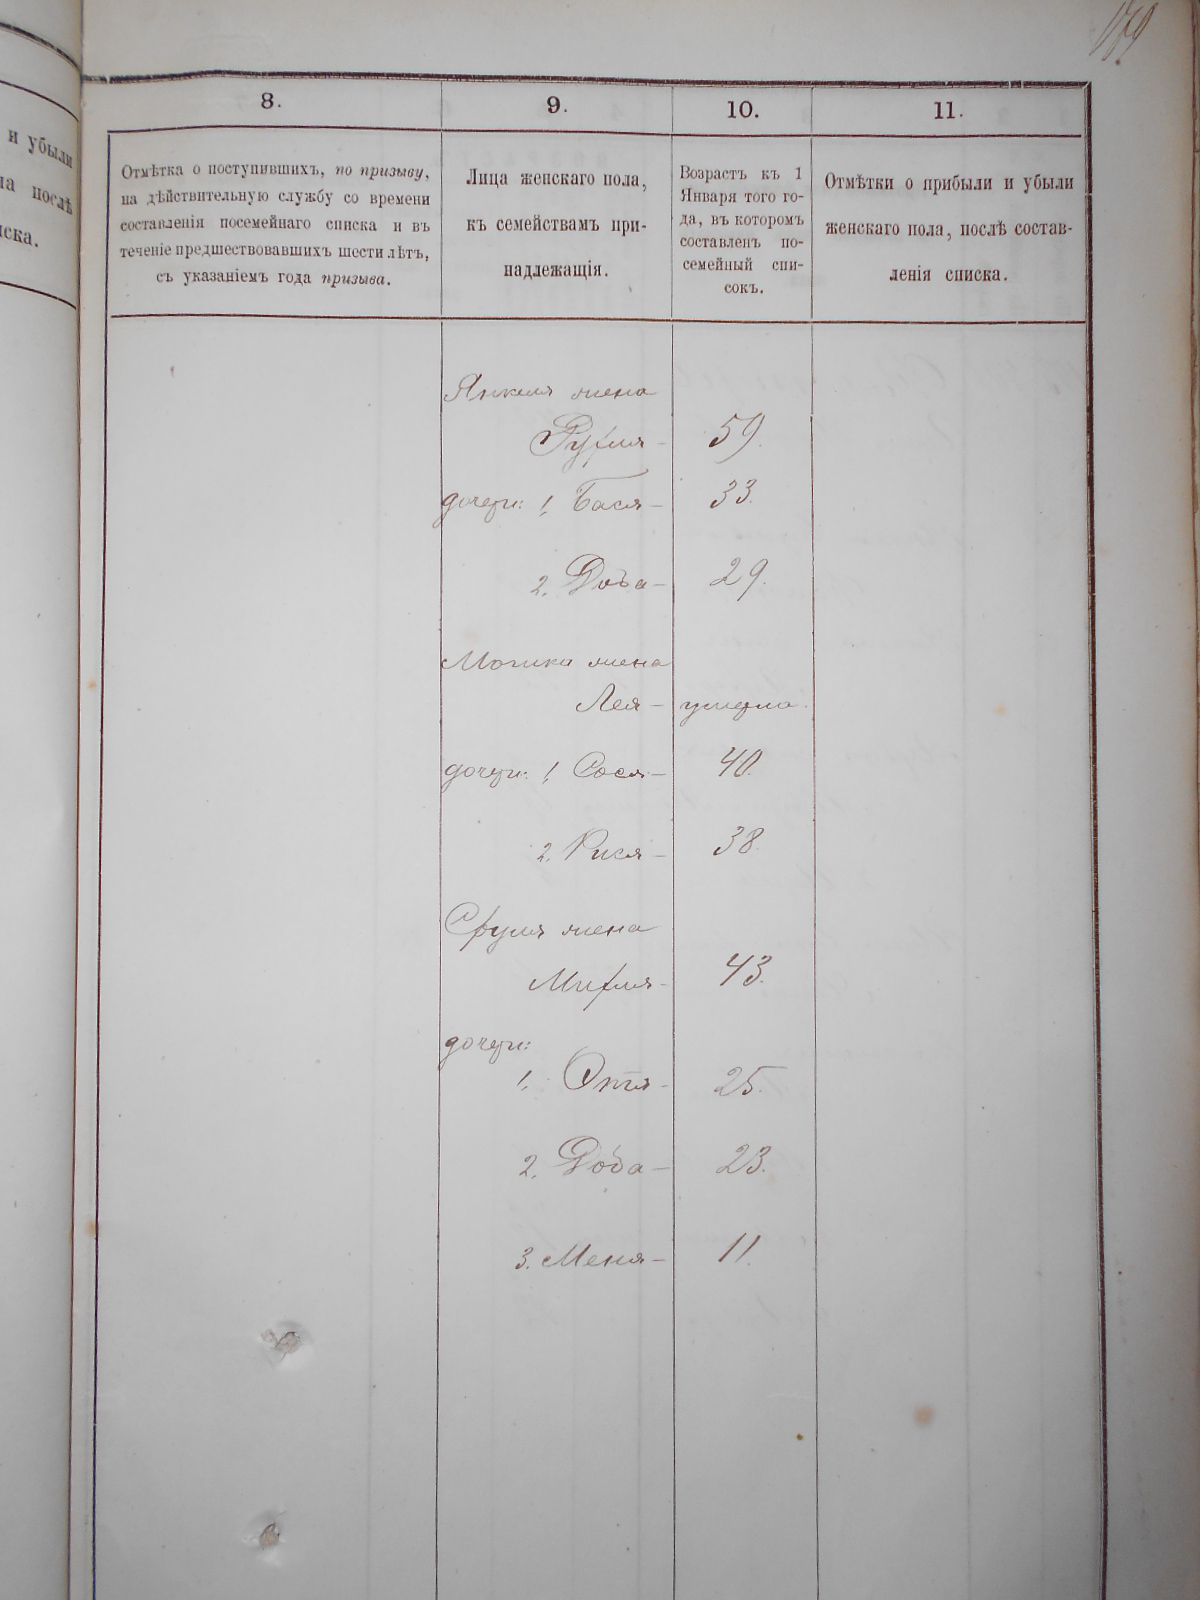 179
и убыли
на послѣ
иска.
8.
9.
10.
11.
Отмѣтка о поступившихъ, по призыву,
на дѣйствительную службу со времени
составленія посемейнаго списка и въ
теченіе предшествовавшихъ шести лѣтъ,
съ указаніемъ года призыва.
Лица женскаго пола,
къ семействамъ при-
надлежащія.
Возрастъ къ 1
Января того го-
да, въ которомъ
составленъ по-
семейный спи-
сокъ.
Отмѣтки о прибыли и убыли
женскаго пола, послѣ состав-
ленія списка.
Янкеля жена
Рухля - 59.
дочери: 1, Бася - 33.
2. Доба - 29.
Мошка жена
Лея - умерла.
дочери: 1, Сося - 40.
2. Рися - 38.
Сруля жена
Мирля - 43.
дочери:
1. Этя - 25.
2. Доба - 23.
3. Меня - 11.